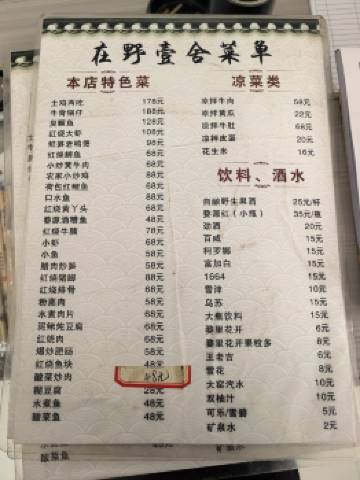 在野壹舍菜单
本店特色菜
土鸡两吃 178元
牛骨锅仔 168元
臭鳜鱼 128元
红烧大虾 108元
鲜笋老鸭煲 98元
红烧鲫鱼 68元
小炒黄牛肉 68元
农家小炒鸡 88元
荷包红鲤鱼 68元
口水鱼 88元
红烧黄丫头 68元
婺源酒糟鱼 48元
红烧牛腩 78元
小虾 68元
小鱼 58元
腊肉炒笋 58元
红烧猪脚 88元
红烧排骨 68元
粉蒸肉 58元
水煮肉片 58元
泥鳅炖豆腐 68元
红烧肉 68元
爆炒肥肠 58元
红烧鱼块 48元
酸菜炒肉 48元
糊豆腐 28元
水煮鱼 48元
酸菜鱼 48元
凉菜类
凉拌牛肉 58元
凉拌黄瓜 22元
凉拌牛肚 68元
凉拌皮蛋 20元
花生米 16元
饮料、酒水
自酿野生果酒 25元/杯
婺源红（小瓶） 35元/瓶
劲酒 20元
百威 15元
柯罗娜 15元
富加白 15元
1664 15元
雪津 10元
乌苏 15元
大瓶饮料 15元
婺里花开 6元
婺里花开果粒多 8元
王老吉 6元
雪花 8元
大窑汽水 10元
双柚汁 10元
可乐/雪碧 5元
矿泉水 2元
酸菜鱼
矿泉水